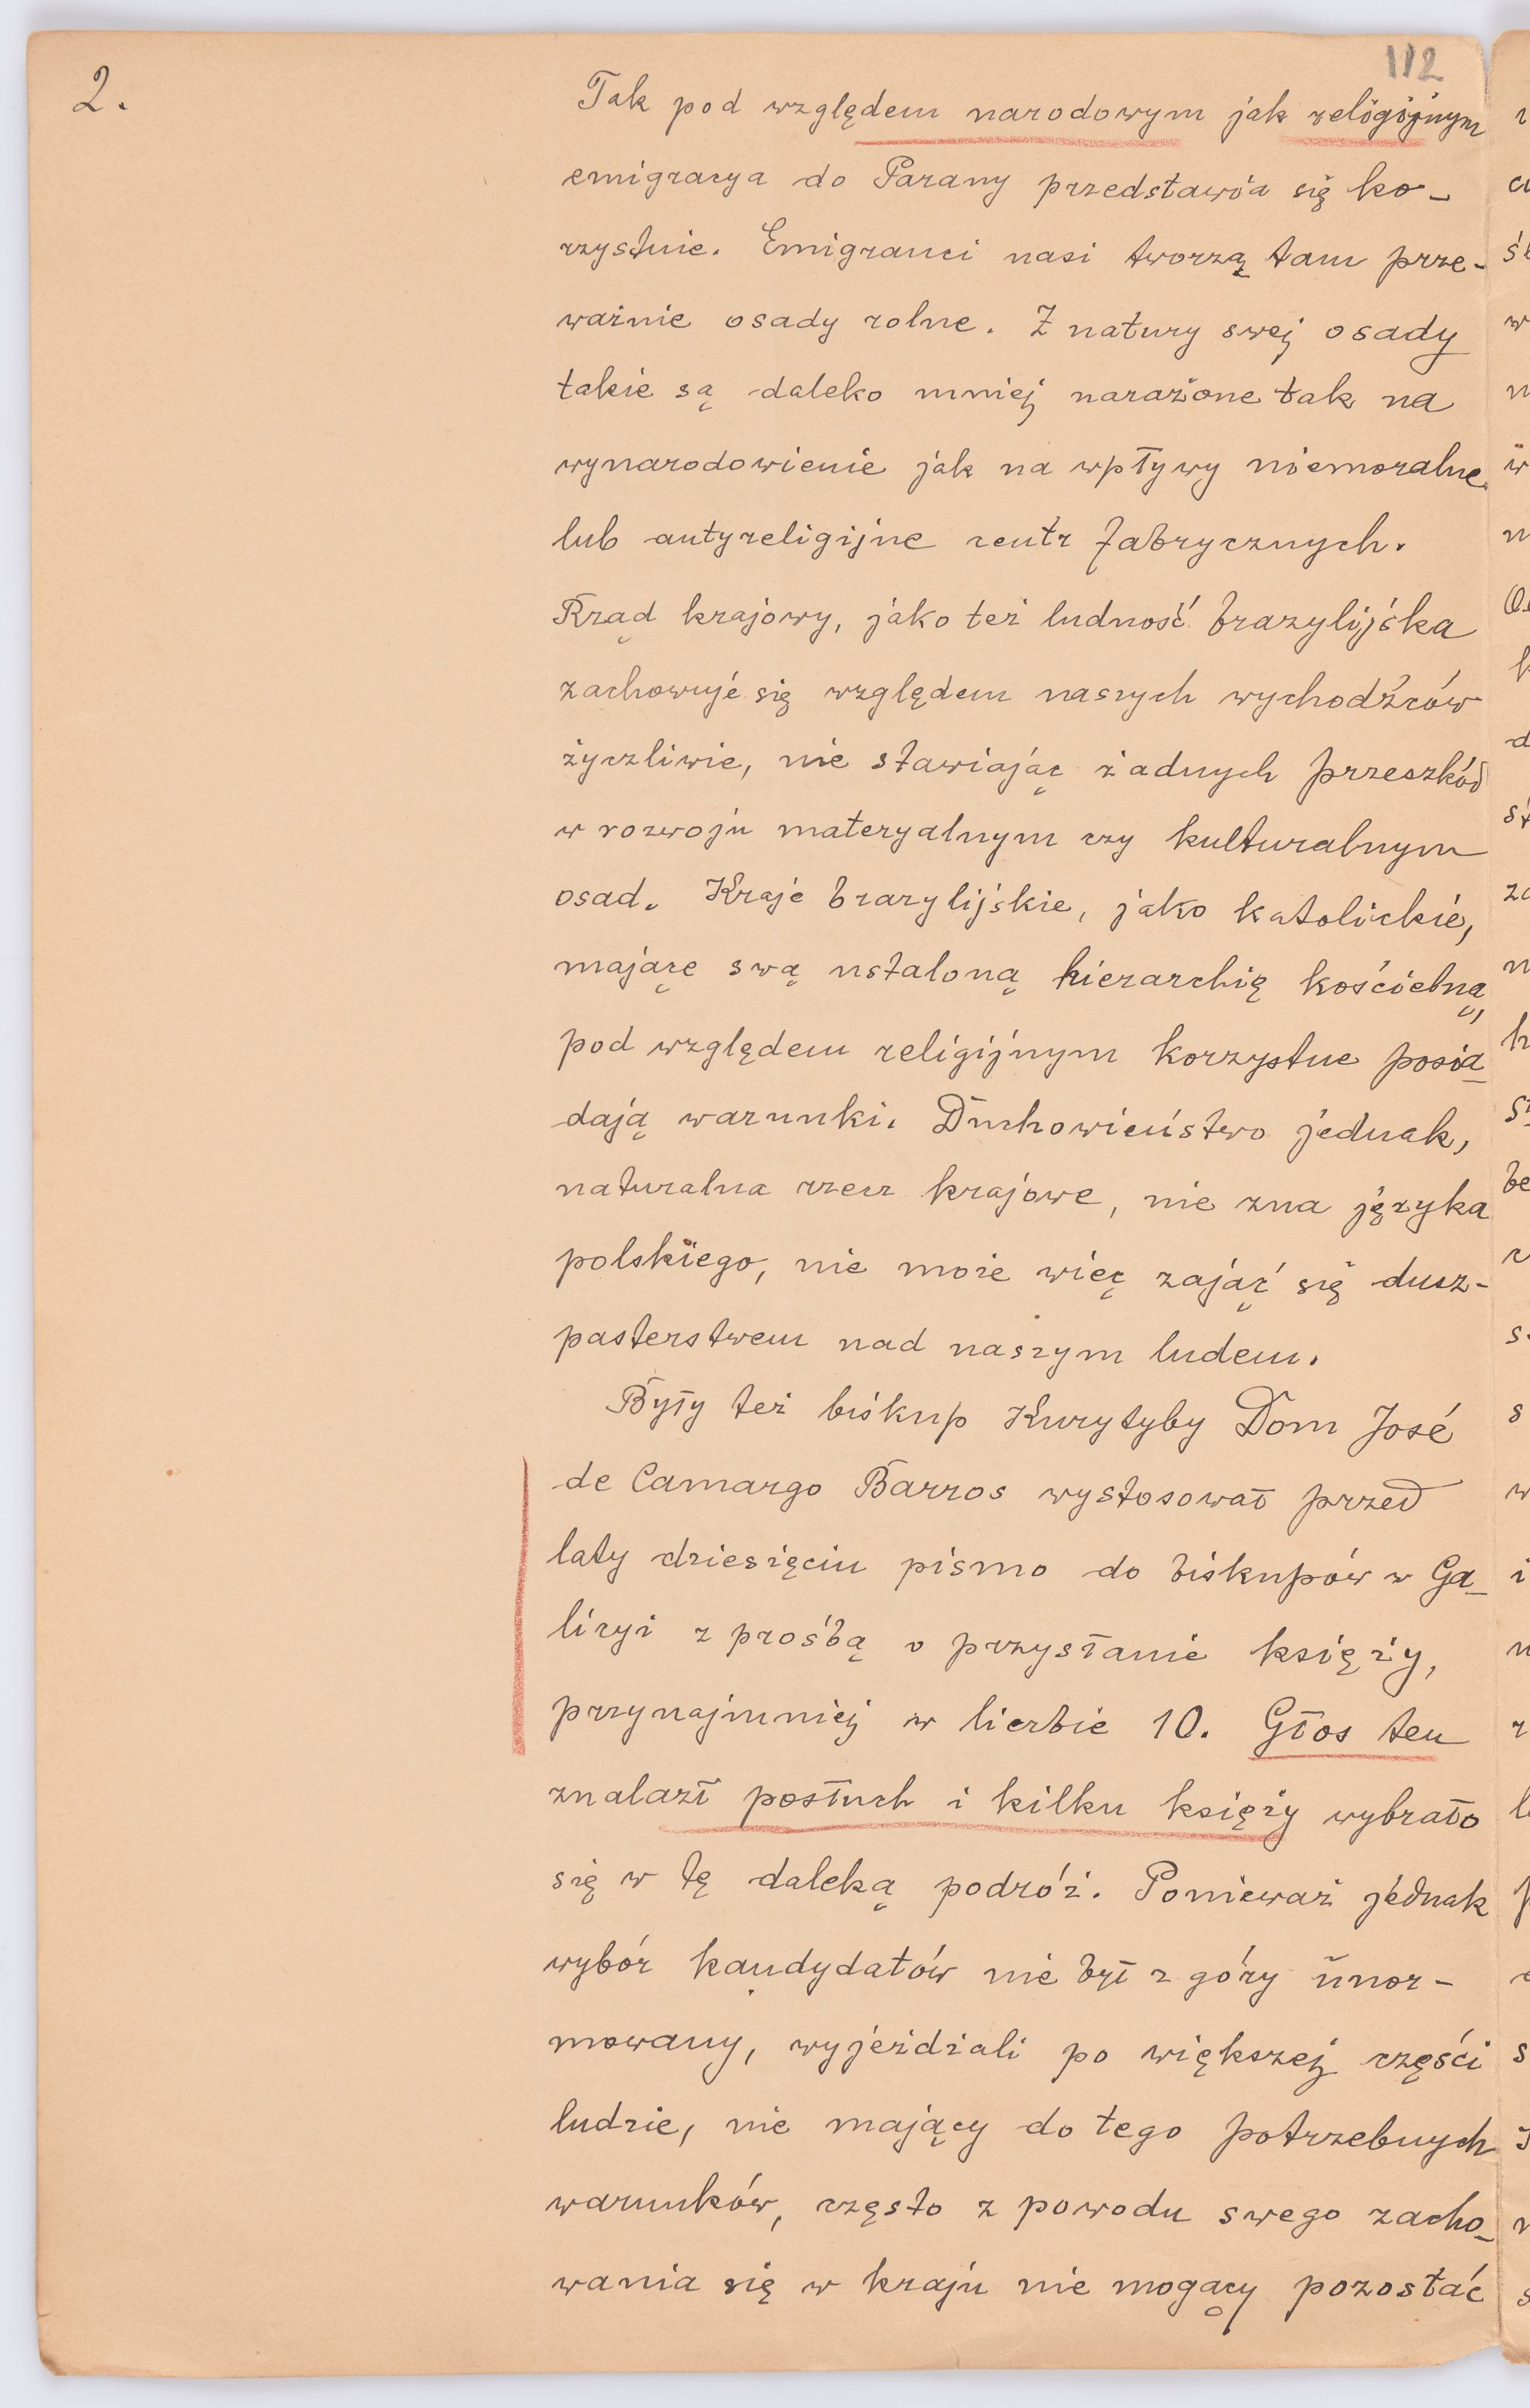 112
2.
Tak pod względem narodowym jak religijnym
emigracya do Parany przedstawia się ko-
rzystnie. Emigranci nasi tworzą tam prze-
ważnie osady rolne. Z natury swej osady
takie są daleko mniej narażone tak na
wynarodowienie jak na wpływy niemoralne
lub antyreligijne centr fabrycznych.
Rząd krajowy, jako też ludność brazylijska
zachowuje się względem naszych wychodźców
życzliwie, nie stawiając żadnych przeszkód
w rozwoju materyalnym czy kulturalnym
osad. Kraje brazylijskie, jako katolickie,
mające swą ustaloną hierarchię kościelną,
pod względem religijnym korzystne posia-
dają warunki. Duchowieństwo jednak,
naturalna rzecz krajowe, nie zna języka
polskiego, nie może więc zająć się dusz-
pasterstwem nad naszym ludem.
Były też biskup Kurytyby Dom José
de Camargo Barros wystosował przed
laty dziesięciu pismo do biskupów w Ga-
licyi z prośbą o przysłanie księży,
przynajmniej w liczbie 10. Głos ten
znalazł posłuch i kilku księży wybrało
się w tę daleką podróż. Ponieważ jednak
wybór kandydatów nie był z góry unor-
mowany, wyjeżdżali po większej części
ludzie, nie mający do tego potrzebnych
warunków, często z powodu swego zacho-
wania się w kraju nie mogący pozostać